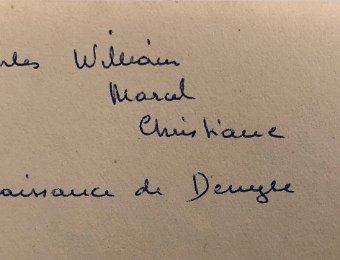 rles William
Marcel
Christiane
aissance de Denyse